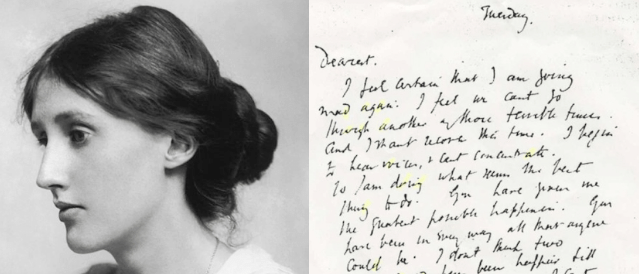 Tuesday.
Dearest.
I feel certain that I am going
mad again: I feel we cant go
through another of those terrible times.
And I shant recover this time. I begin
to hear voices, & cant concentrate.
So I am doing what seems the best
thing to do. You have given me
the greatest possible happiness. You
have been in every way all that anyone
could be. I dont think two
have been happier till